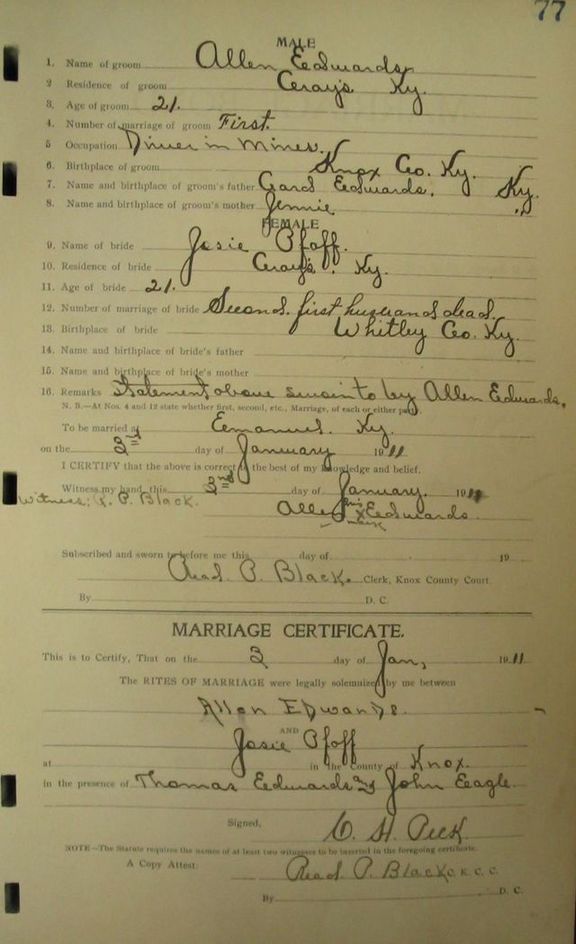 77
MALE
1. Name of groom Allen Eedwards
2 Residence of groom Grays Ky.
3. Age of groom 21.
4. Number of marriage of groom First.
5 Occupation Driver in Mines.
6. Birthplace of groom Knox Co. Ky.
7. Name and birthplace of groom's father Eedwards. Ky.
8. Name and birthplace of groom's mother Jennie "
FEMALE
9. Name of bride Josie Pfoff.
10. Residence of bride Grays. Ky.
11. Age of bride 21.
12. Number of marriage of bride Second. first husband dead.
13. Birthplace of bride Whitley Co. Ky.
14. Name and birthplace of bride's father
15. Name and birthplace of bride's mother
16. Remarks Statement above sworn to by Allen Eedwards.
N. B.—At Nos. 4 and 12 state whether first, second, etc., Marriage, of each or either party.
To be married at Eemanuel. Ky.
on the 3rd day of January 1911
I CERTIFY that the above is correct to the best of my knowledge and belief.
Witness my hand, this 3rd day of January. 1911
Witness; P. Black.
his
Allen x Eedwards
mark
Subscribed and sworn to before me this day of 19
Read P. Black. Clerk, Knox County Court.
By D. C.
MARRIAGE CERTIFICATE.
This is to Certify, That on the 3 day of Jan, 1911
The RITES OF MARRIAGE were legally solemnized by me between
Allen Edwards.
AND
Josie Pfoff
at in the County of Knox.
in the presence of Thomas Eedwards & John Eagle.
Signed, H. Peek.
NOTE—The Statute requires the names of at least two witnesses to be inserted in the foregoing certificate.
A Copy Attest: Read P. Black C. K. C. C.
By D. C.